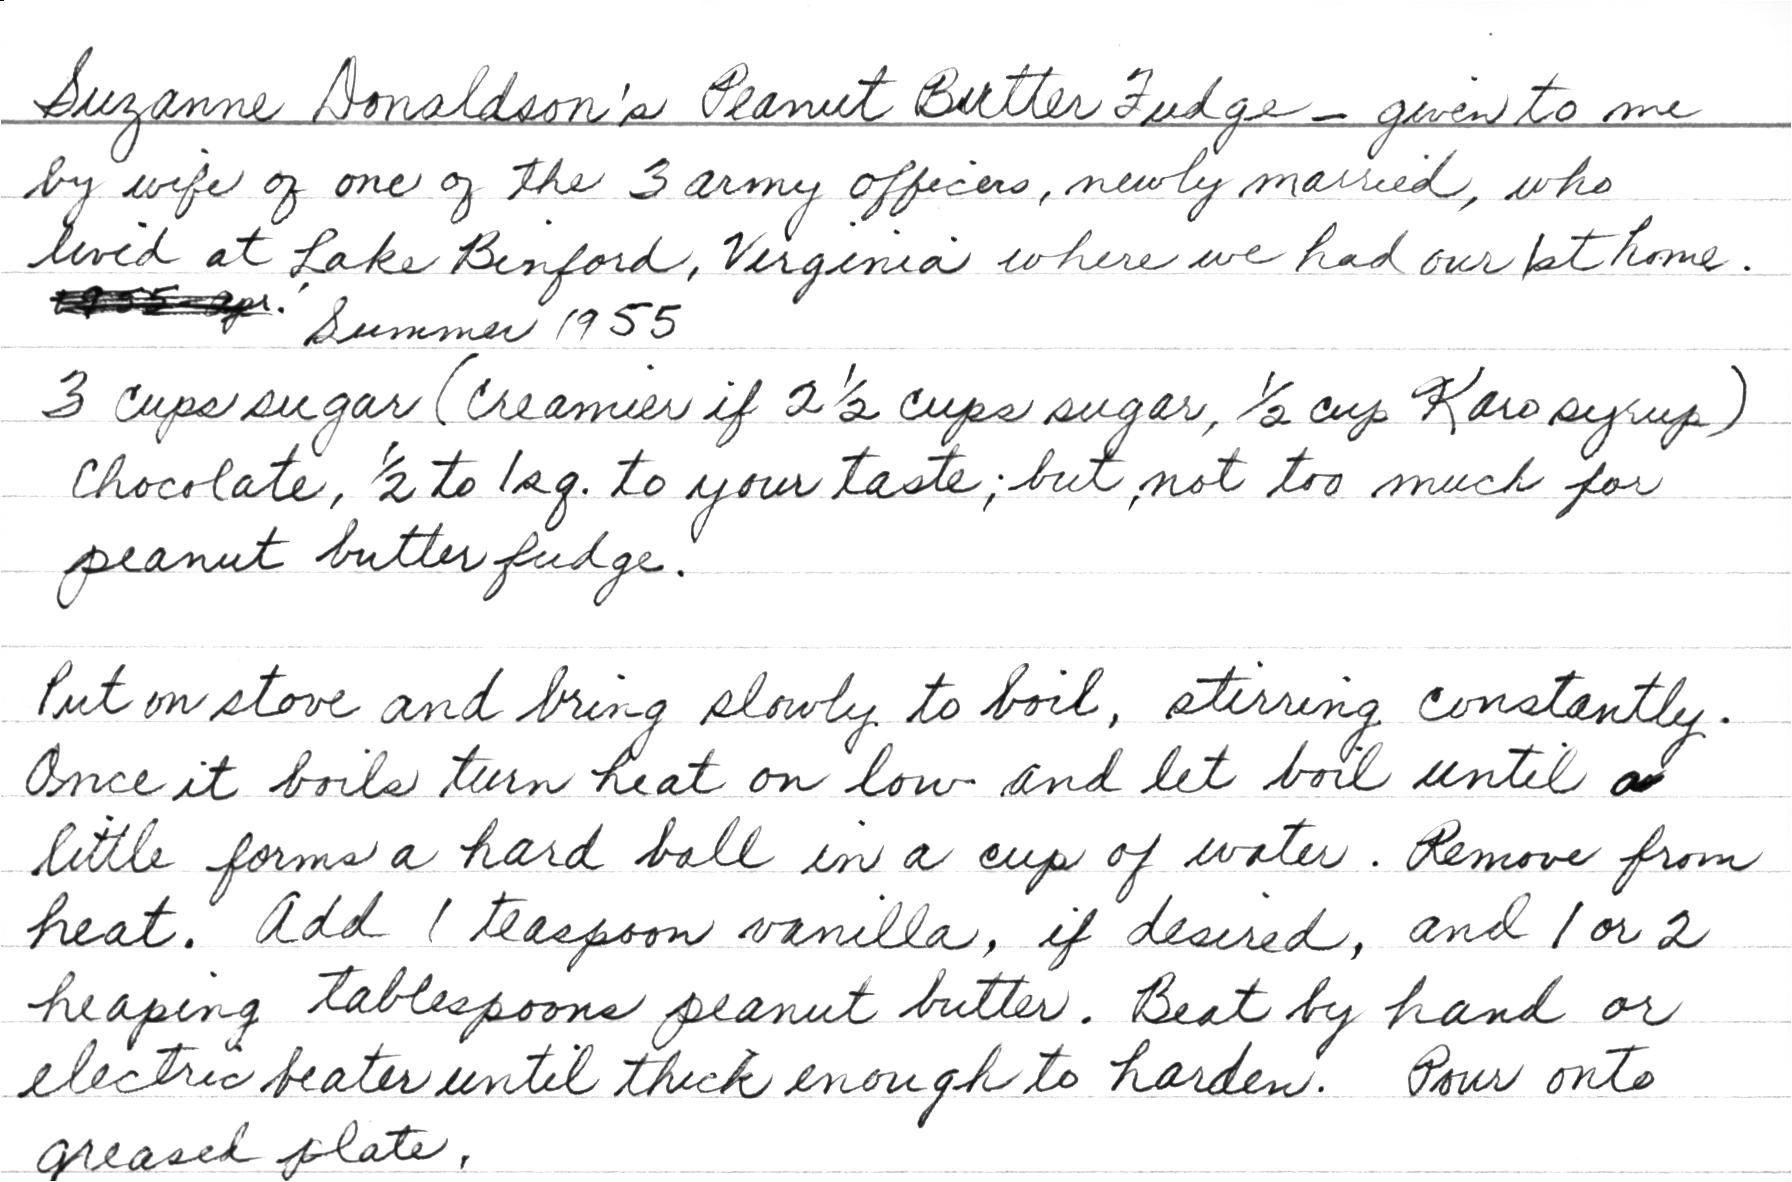 Suzanne Donaldson's Peanut Butter Fudge – given to me
by wife of one of the 3 army officers, newly married, who
lived at Lake Binford, Virginia where we had our 1st home.
Summer 1955
3 cups sugar (Creamier if 2 1/2 cups sugar, 1/2 cup Karo syrup)
Chocolate, 1/2 to 1 sq. to your taste; but, not too much for
peanut butter fudge.
Put on stove and bring slowly to boil, stirring constantly.
Once it boils turn heat on low and let boil until a
little forms a hard ball in a cup of water. Remove from
heat. Add 1 teaspoon vanilla, if desired, and 1 or 2
heaping tablespoons peanut butter. Beat by hand or
electric beater until thick enough to harden. Pour onto
greased plate.